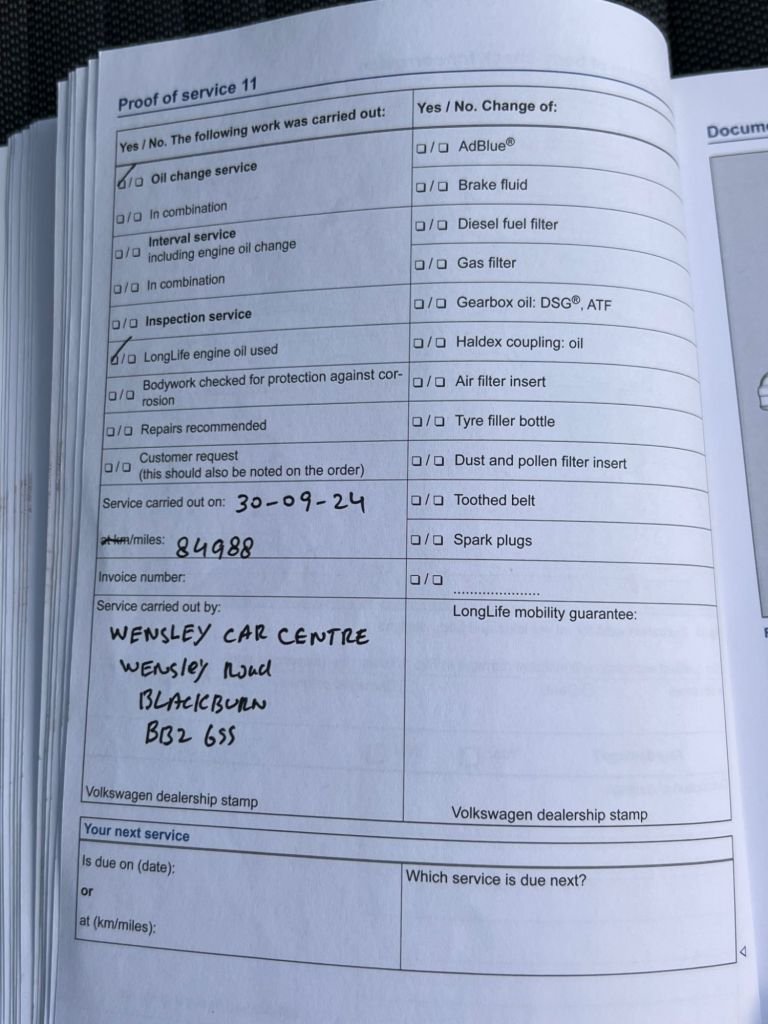 Proof of service 11
Yes / No. The following work was carried out:
☑/☐ Oil change service
☐/☐ In combination
☐/☐ Interval service
including engine oil change
☐/☐ In combination
☐/☐ Inspection service
☑/☐ LongLife engine oil used
☐/☐ Bodywork checked for protection against cor-
rosion
☐/☐ Repairs recommended
☐/☐ Customer request
(this should also be noted on the order)
Service carried out on: 30-09-24
at km/miles: 84988
Invoice number:
Service carried out by:
WENSLEY CAR CENTRE
WENSley Road
BLACKBURN
BB2 6SS
Volkswagen dealership stamp
Yes / No. Change of:
☐/☐ AdBlue®
☐/☐ Brake fluid
☐/☐ Diesel fuel filter
☐/☐ Gas filter
☐/☐ Gearbox oil: DSG®, ATF
☐/☐ Haldex coupling: oil
☐/☐ Air filter insert
☐/☐ Tyre filler bottle
☐/☐ Dust and pollen filter insert
☐/☐ Toothed belt
☐/☐ Spark plugs
☐/☐ ....................
LongLife mobility guarantee:
Volkswagen dealership stamp
Your next service
Is due on (date):
or
at (km/miles):
Which service is due next?
Docum